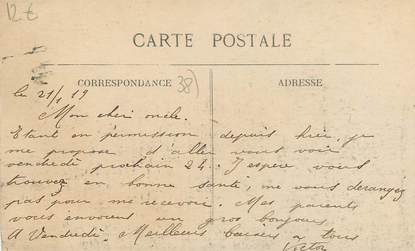 12 €
CARTE POSTALE
CORRESPONDANCE 38)
ADRESSE
le 21/1 19
Mon cher oncle.
Etant en permission depuis hier, je
me propose d'aller vous voir
vendredi prochain 24. J'espère vous
trouver en bonne santé, ne vous dérangez
pas pour me recevoir. Mes parents
vous envoient un gros bonjour,
A Vendredi. Meilleurs baisers a tous
Victor